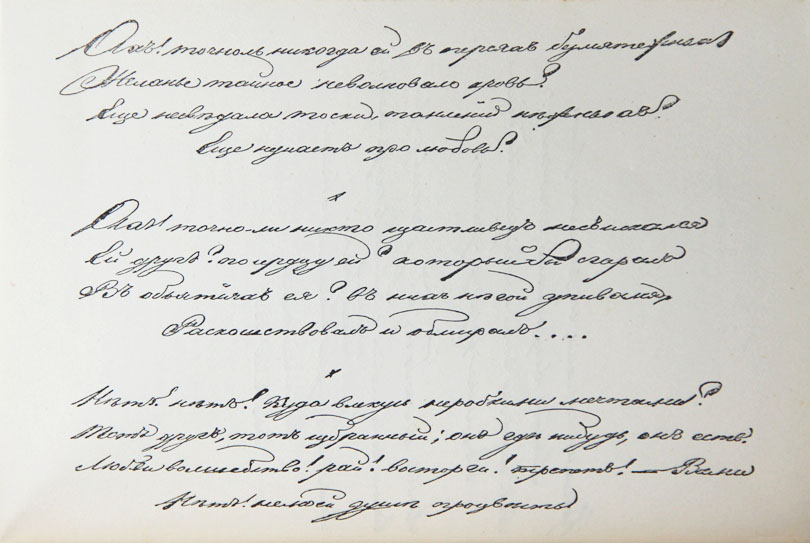 Ахъ! точноль никогда ей въ персяхъ безмятежныхъ
Желанье тайное неволновало кровь?
Еще невѣдала тоски, томлений нѣжныхъ?
Еще незнаетъ про любовь?
Ахъ! точно-ли никто щастливецъ несыскался
Ей другъ? по сердцу ей? который бы сгаралъ
Въ объятияхъ ея? въ нихъ негой упивался,
Раскошствовалъ и обмиралъ....
Нѣтъ! нѣтъ! Куда влекусь неробкими мечтами?
Тотъ другъ, тотъ избранный; онъ гдѣ нибудь, онъ есть.
Любви волшебство! рай! восторги! трепетъ! — Вами
Нѣтъ! немоей душѣ процвѣсть